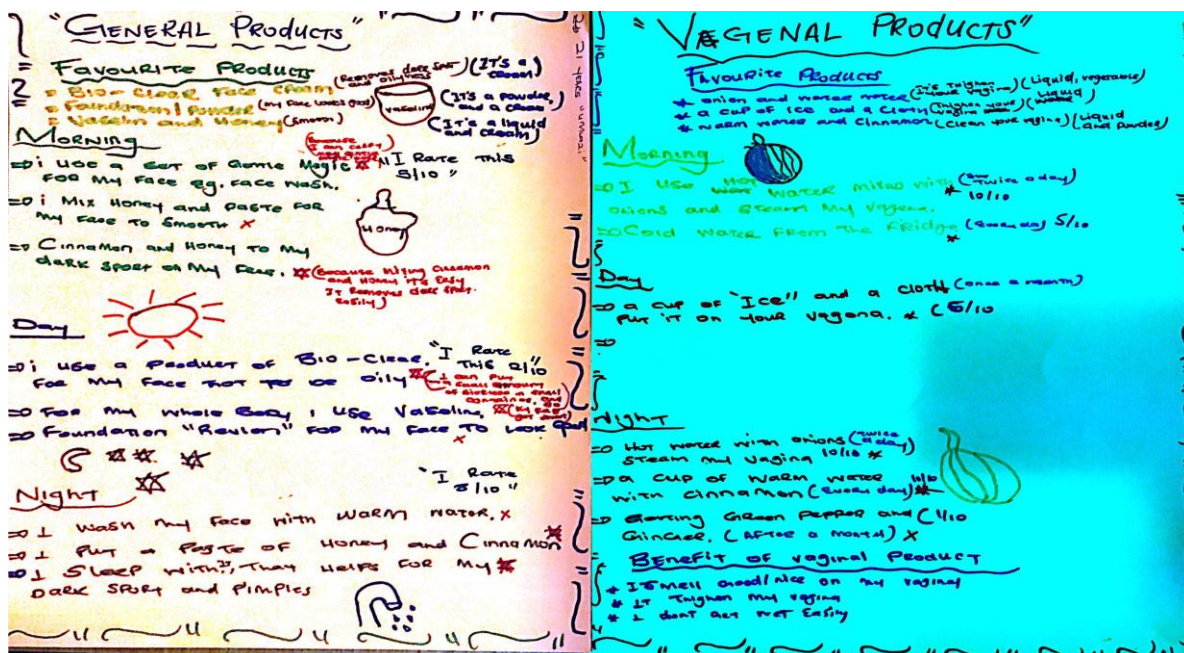 "GENERAL PRODUCTS"
FAVOURITE PRODUCTS
BIO-CLEAR FACE CREAM (Removes dark spot and oilyness) (IT'S a cream)
Foundation/Powder (my face looks good) (IT'S a powder, and a cream)
Vaselin and Honey (smooth) (IT'S a liquid and cream)
Vaseline
MORNING
i use a set of Gentle Magic
FOR MY FACE eg. FACE WASH.
"I RATE THIS
5/10"
i MIX HONEY AND PASTE FOR
MY FACE TO SMOOTH X
Honey
CINNAMON AND HONEY TO MY
dark SPORT on MY FACE.
(Because Mixing
and Honey it's easy
IT Removes dark spot.
easily)
DAY
i use a PRODUCT OF BIO-CLEAR.
FOR MY FACE NOT TO BE OILY
"I RATE
THIS 2/10"
FOR MY WHOLE BODY I USE VASELINE.
FOUNDATION "Revlon" FOR MY FACE TO LOOK good
X
NIGHT
"I RATE
5/10"
I WASH MY FACE WITH WARM WATER. X
I PUT a PASTE OF HONEY AND CINNAMON
I SLEEP WITH IT, THAT HELPS FOR MY
DARK SPORT and PIMPLES
21 YEARS
"VAGENAL PRODUCTS"
FAVOURITE PRODUCTS
* onion and water (Liquid, vegetable)
* a cup of ICE and a CLOTH (Liquid
* warm water and cinnamon (Clean your vagina) (Liquid and powder)
MORNING
I USE HOT WATER MIXED WITH (twice a day)
ONIONS and STEAM MY VAGENA. * 10/10
COLD WATER FROM THE FRIDGE (every day) 5/10
*
DAY
a CUP OF "ICE" and a CLOTH (once a month)
PUT IT ON YOUR VAGENA. *
NIGHT
HOT WATER WITH ONIONS (twice a day)
STEAM MY VAGINA 10/10 *
a CUP OF WARM WATER 10/10
WITH CINNAMON (every day) *
GREEN PEPPER and
GINGHER. (AFTER a MONTH) X
BENEFIT OF VAGINAL PRODUCT
* IT SMELL GOOD/NICE ON MY VAGINA
* IT THIGHEN MY VAGINA
* I DON'T GET WET EASILY